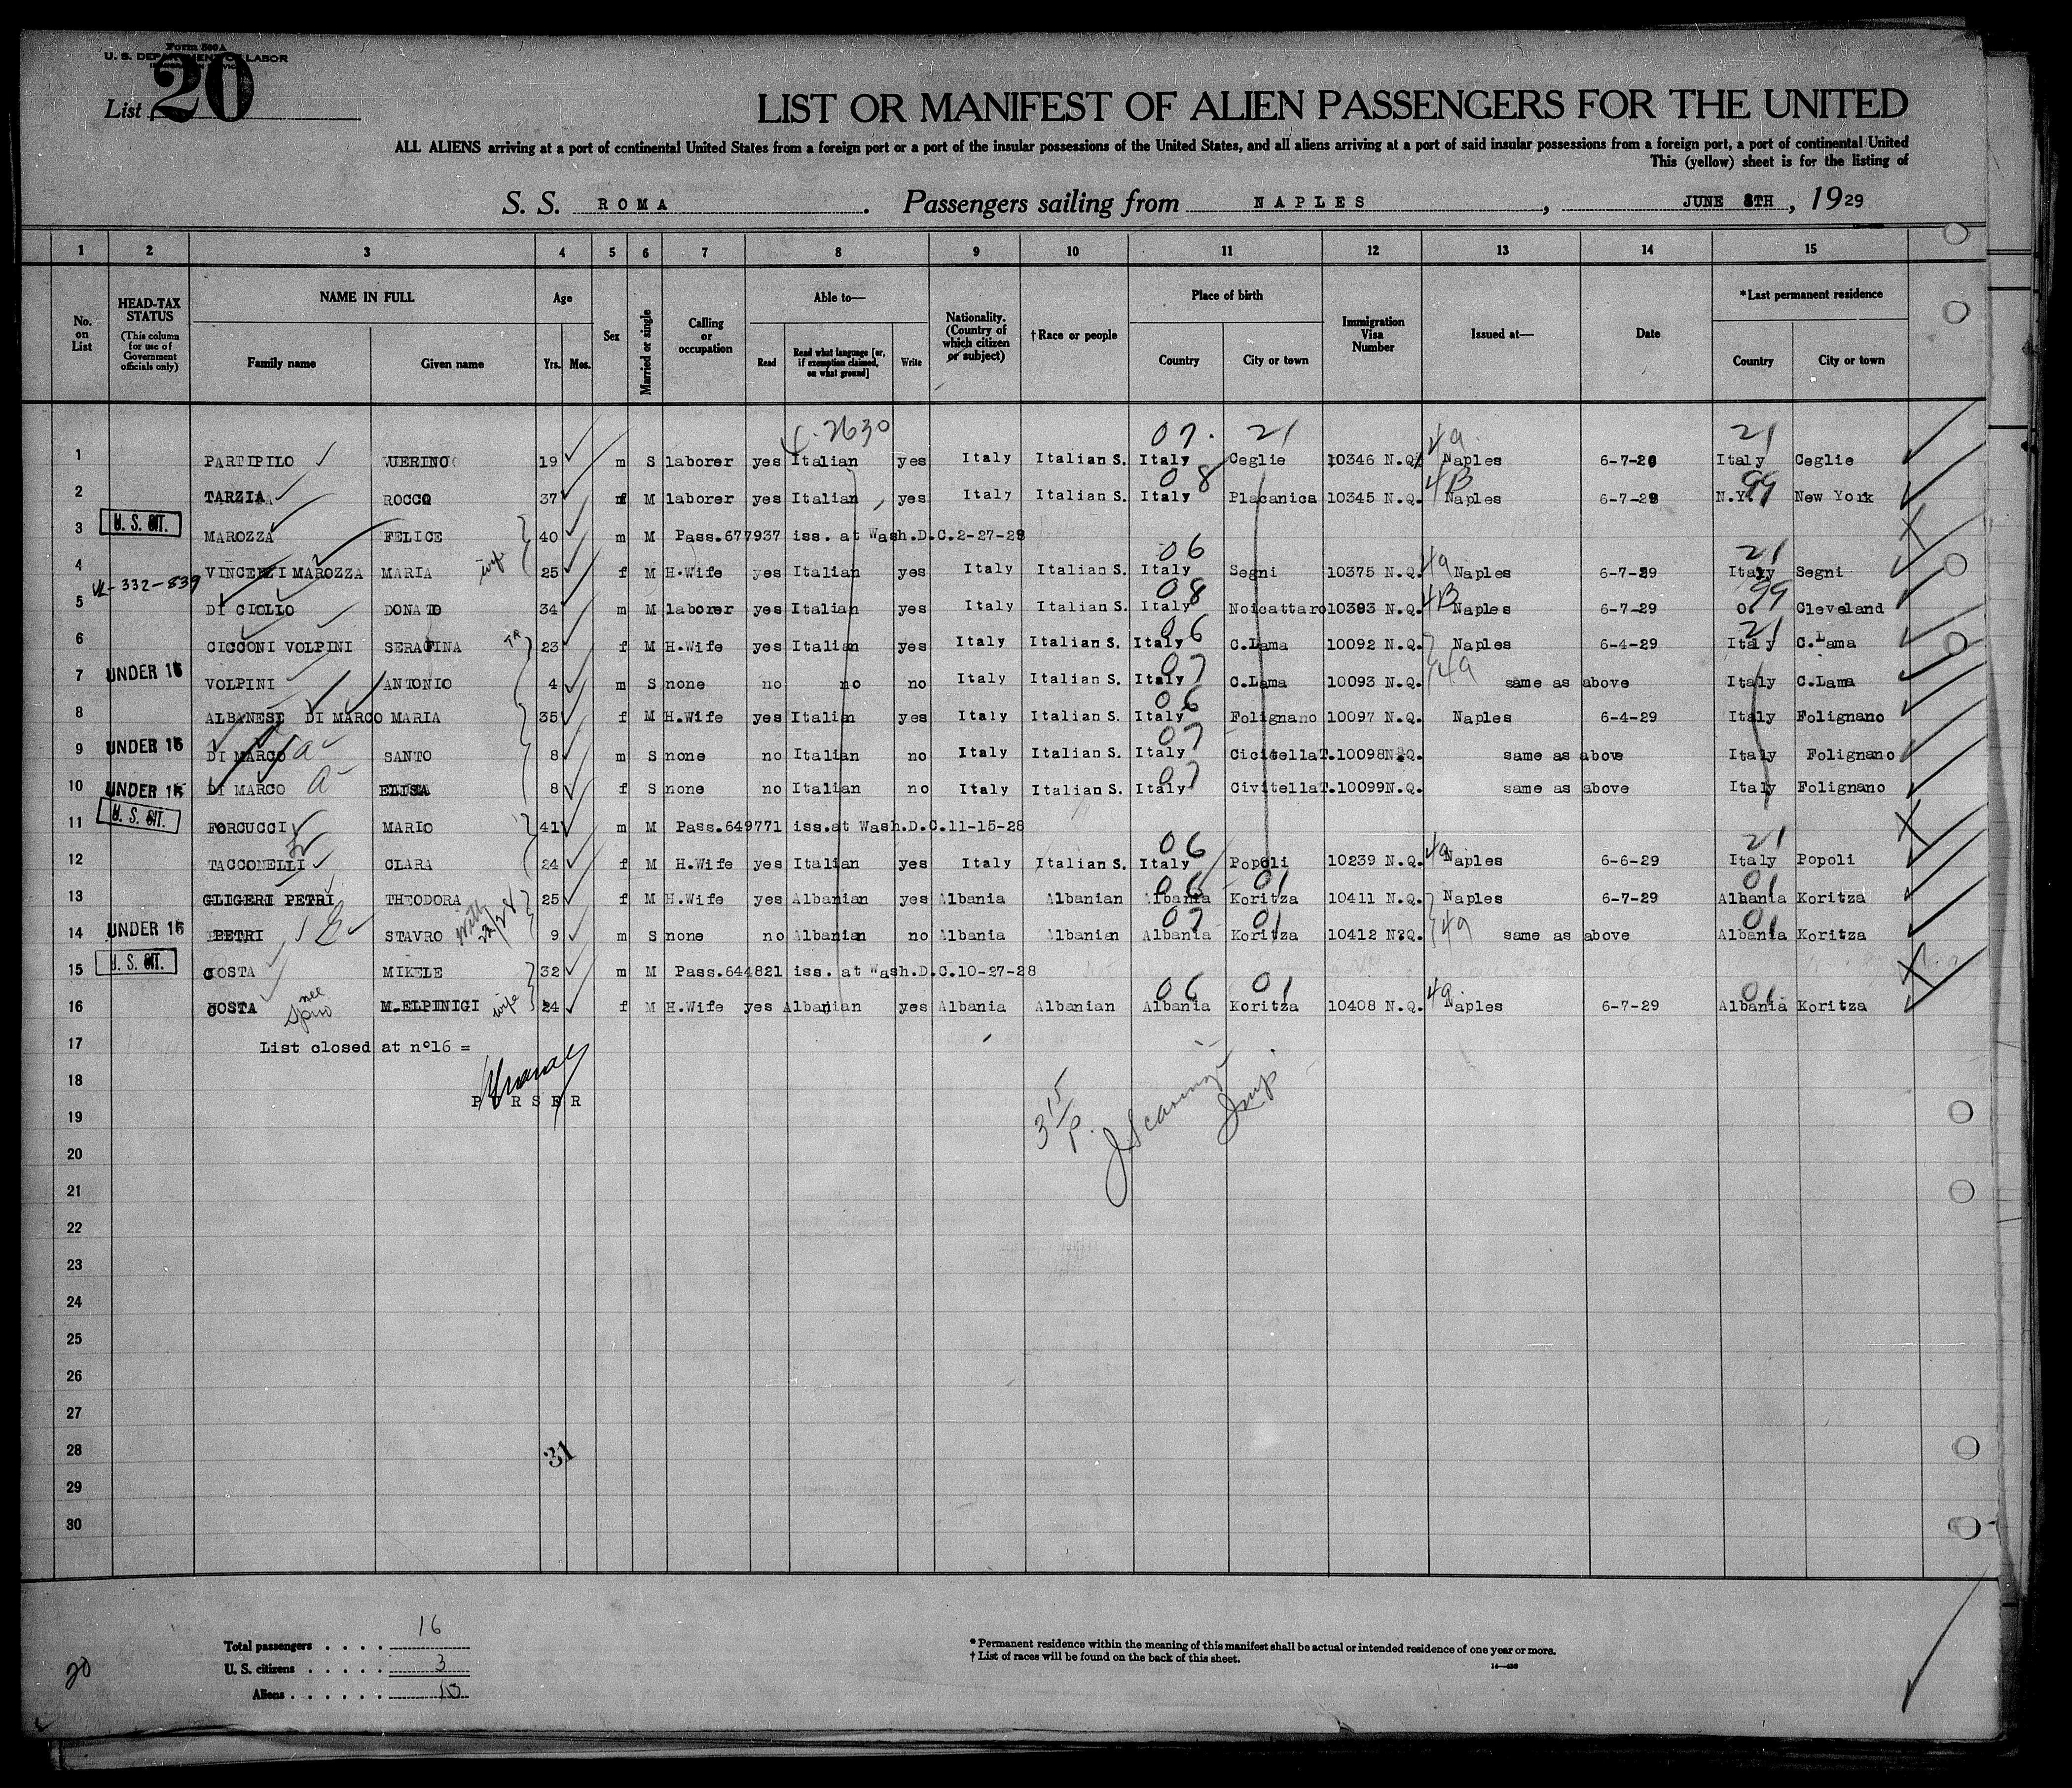 Form 500 A
U. S. DEPARTMENT OF LABOR
List 20
LIST OR MANIFEST OF ALIEN PASSENGERS FOR THE UNITED
ALL ALIENS arriving at a port of continental United States from a foreign port or a port of the insular possessions of the United States, and all aliens arriving at a port of said insular possessions from a foreign port, a port of continental United
This (yellow) sheet is for the listing of
S. S. ROMA. Passengers sailing from NAPLES, JUNE 8TH, 1929
1 2 3 4 5 6 7 8 9 10 11 12 13 14 15
No. on List
HEAD-TAX STATUS (This column for use of Government officials only)
NAME IN FULL
Family name Given name
Age
Yrs. Mos.
Sex
Married or single
Calling or occupation
Able to—
Read
Read what language [or, if exemption claimed, on what ground]
Write
Nationality. (Country of which citizen or subject)
† Race or people
Place of birth
Country City or town
Immigration Visa Number
Issued at—
Date
*Last permanent residence
Country City or town
2630 07. 21 49 21
1 PARTIPILO 19 m S laborer yes Italian yes Italy Italian S. Italy Ceglie 10346 N.Q. Naples Italy Ceglie
08 4B 99
2 TARZIA ROCCO 37 M laborer yes Italian yes Italy Italian S. Italy Placanica 10345 N.Q. Naples 6-7-29 N.Y. New York
U. S. CIT.
3 MAROZZA FELICE 40 m M Pass.677937 iss. at Wash.D.C.2-27-28
06 49 21
4 VINCENZI MAROZZA MARIA wife 25 f M H.Wife yes Italian yes Italy Italian S. Italy Segni 10375 N.Q. Naples 6-7-29 Italy Segni
332-839 08 4B 99
5 DI CIOLLO DONATO 34 m M laborer yes Italian yes Italy Italian S. Italy Noicattaro 10393 N.Q. Naples 6-7-29 O. Cleveland
06 21
6 CICCONI VOLPINI SERAFINA 23 f M H.Wife yes Italian yes Italy Italian S. Italy C.Lama 10092 N.Q. Naples 6-4-29 Italy C.Lama
UNDER 16 07 49
7 VOLPINI ANTONIO 4 m S none no no no Italy Italian S. Italy C.Lama 10093 N.Q. same as above Italy C.Lama
06
8 ALBANESI DI MARCO MARIA 35 f M H.Wife yes Italian yes Italy Italian S. Italy Folignano 10097 N.Q. Naples 6-4-29 Italy Folignano
UNDER 16 07
9 DI MARCO SANTO 8 m S none no Italian no Italy Italian S. Italy CicitellaT. 10098N.Q. same as above Italy Folignano
UNDER 16 07
10 DI MARCO ELISA 8 f S none no Italian no Italy Italian S. Italy CivitellaT. 10099N.Q. same as above Italy Folignano
U. S. CIT.
11 FORCUCCI MARIO 41 m M Pass.649771 iss.at Wash.D.C.11-15-28
06 49 21
12 TACCONELLI CLARA 24 f M H.Wife yes Italian yes Italy Italian S. Italy Popoli 10239 N.Q. Naples 6-6-29 Italy Popoli
06 01 01
13 GLIGERI PETRI THEODORA 25 f M H.Wife yes Albanian yes Albania Albanian Albania Koritza 10411 N.Q. Naples 6-7-29 Albania Koritza
UNDER 16 07 01 49 01
14 PETRI STAVRO 9 m S none no Albanian no Albania Albanian Albania Koritza 10412 N.Q. same as above Albania Koritza
U. S. CIT.
15 COSTA MIKELE 32 m M Pass.644821 iss. at Wash.D.C.10-27-28
06 01 49 01
16 COSTA nee Spiro M.ELPINIGI wife 24 f M H.Wife yes Albanian yes Albania Albanian Albania Koritza 10408 N.Q. Naples 6-7-29 Albania Koritza
17 List closed at n°16 =
18
PURSER
3 15 P.
Insp.
19
20
21
22
23
24
25
26
27
28
31
29
30
Total passengers . . . . 16
U. S. citizens . . . . . 3
Aliens . . . . . . 13
20
* Permanent residence within the meaning of this manifest shall be actual or intended residence of one year or more.
† List of races will be found on the back of this sheet.